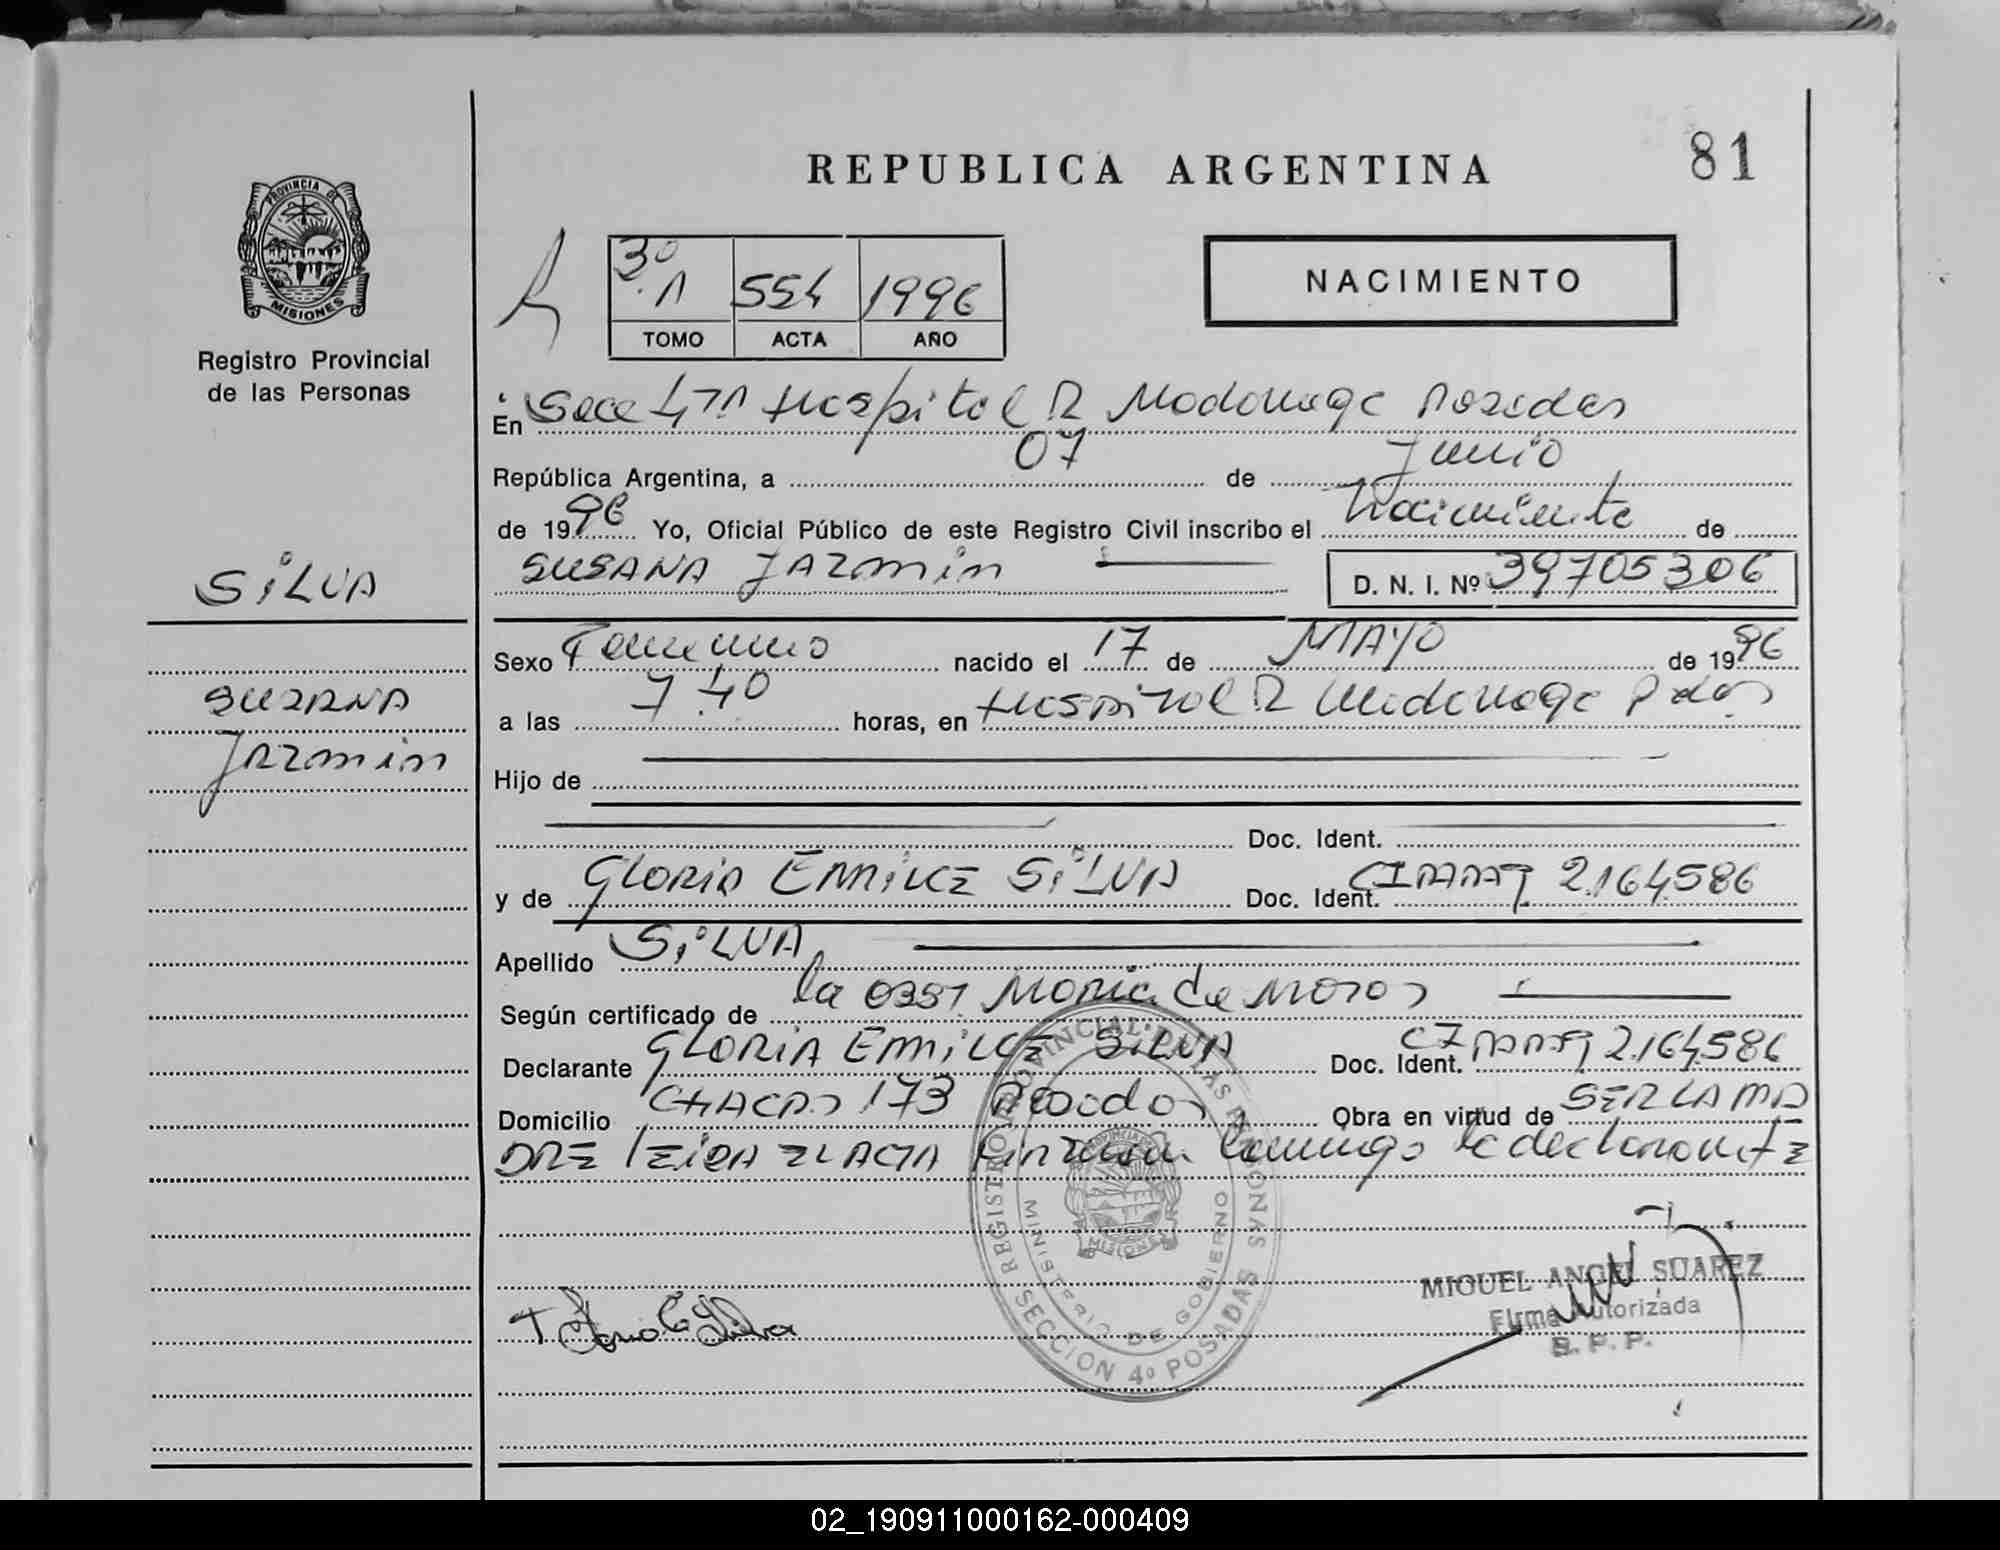 REPUBLICA ARGENTINA
81
PROVINCIA DE
MISIONES
Registro Provincial
de las Personas
3º A 554 1996
TOMO ACTA AÑO
NACIMIENTO
En Secc 4ta Hospital R Madariaga Posadas
República Argentina, a 07 de Junio
de 1996 Yo, Oficial Público de este Registro Civil inscribo el Nacimiento de
SUSANA JAZmin D. N. I. Nº 39705306
SiLVA
SUSANA
JAZmin
Sexo Femenino nacido el 17 de MAYO de 1996
a las 7 40 horas, en Hospital R Madariaga Pdas
Hijo de
Doc. Ident.
y de GLORIA EmiLCE SiLVA Doc. Ident. 2.164.586
Apellido SiLVA
Según certificado de la Obst. Maria de
Declarante GLORIA EmiLCE SiLVA Doc. Ident. 2.164.586
Domicilio CHACRA 173 Posadas Obra en virtud de SER LA MA
DRE LEIDA EL ACTA Firman la declarante
REGISTRO PROVINCIAL DE LAS PERSONAS
MINISTERIO DE GOBIERNO
MISIONES
SECCION 4º POSADAS
Silva
MIGUEL ANGEL SUAREZ
Firma Autorizada
R. P. P.
02_190911000162-000409